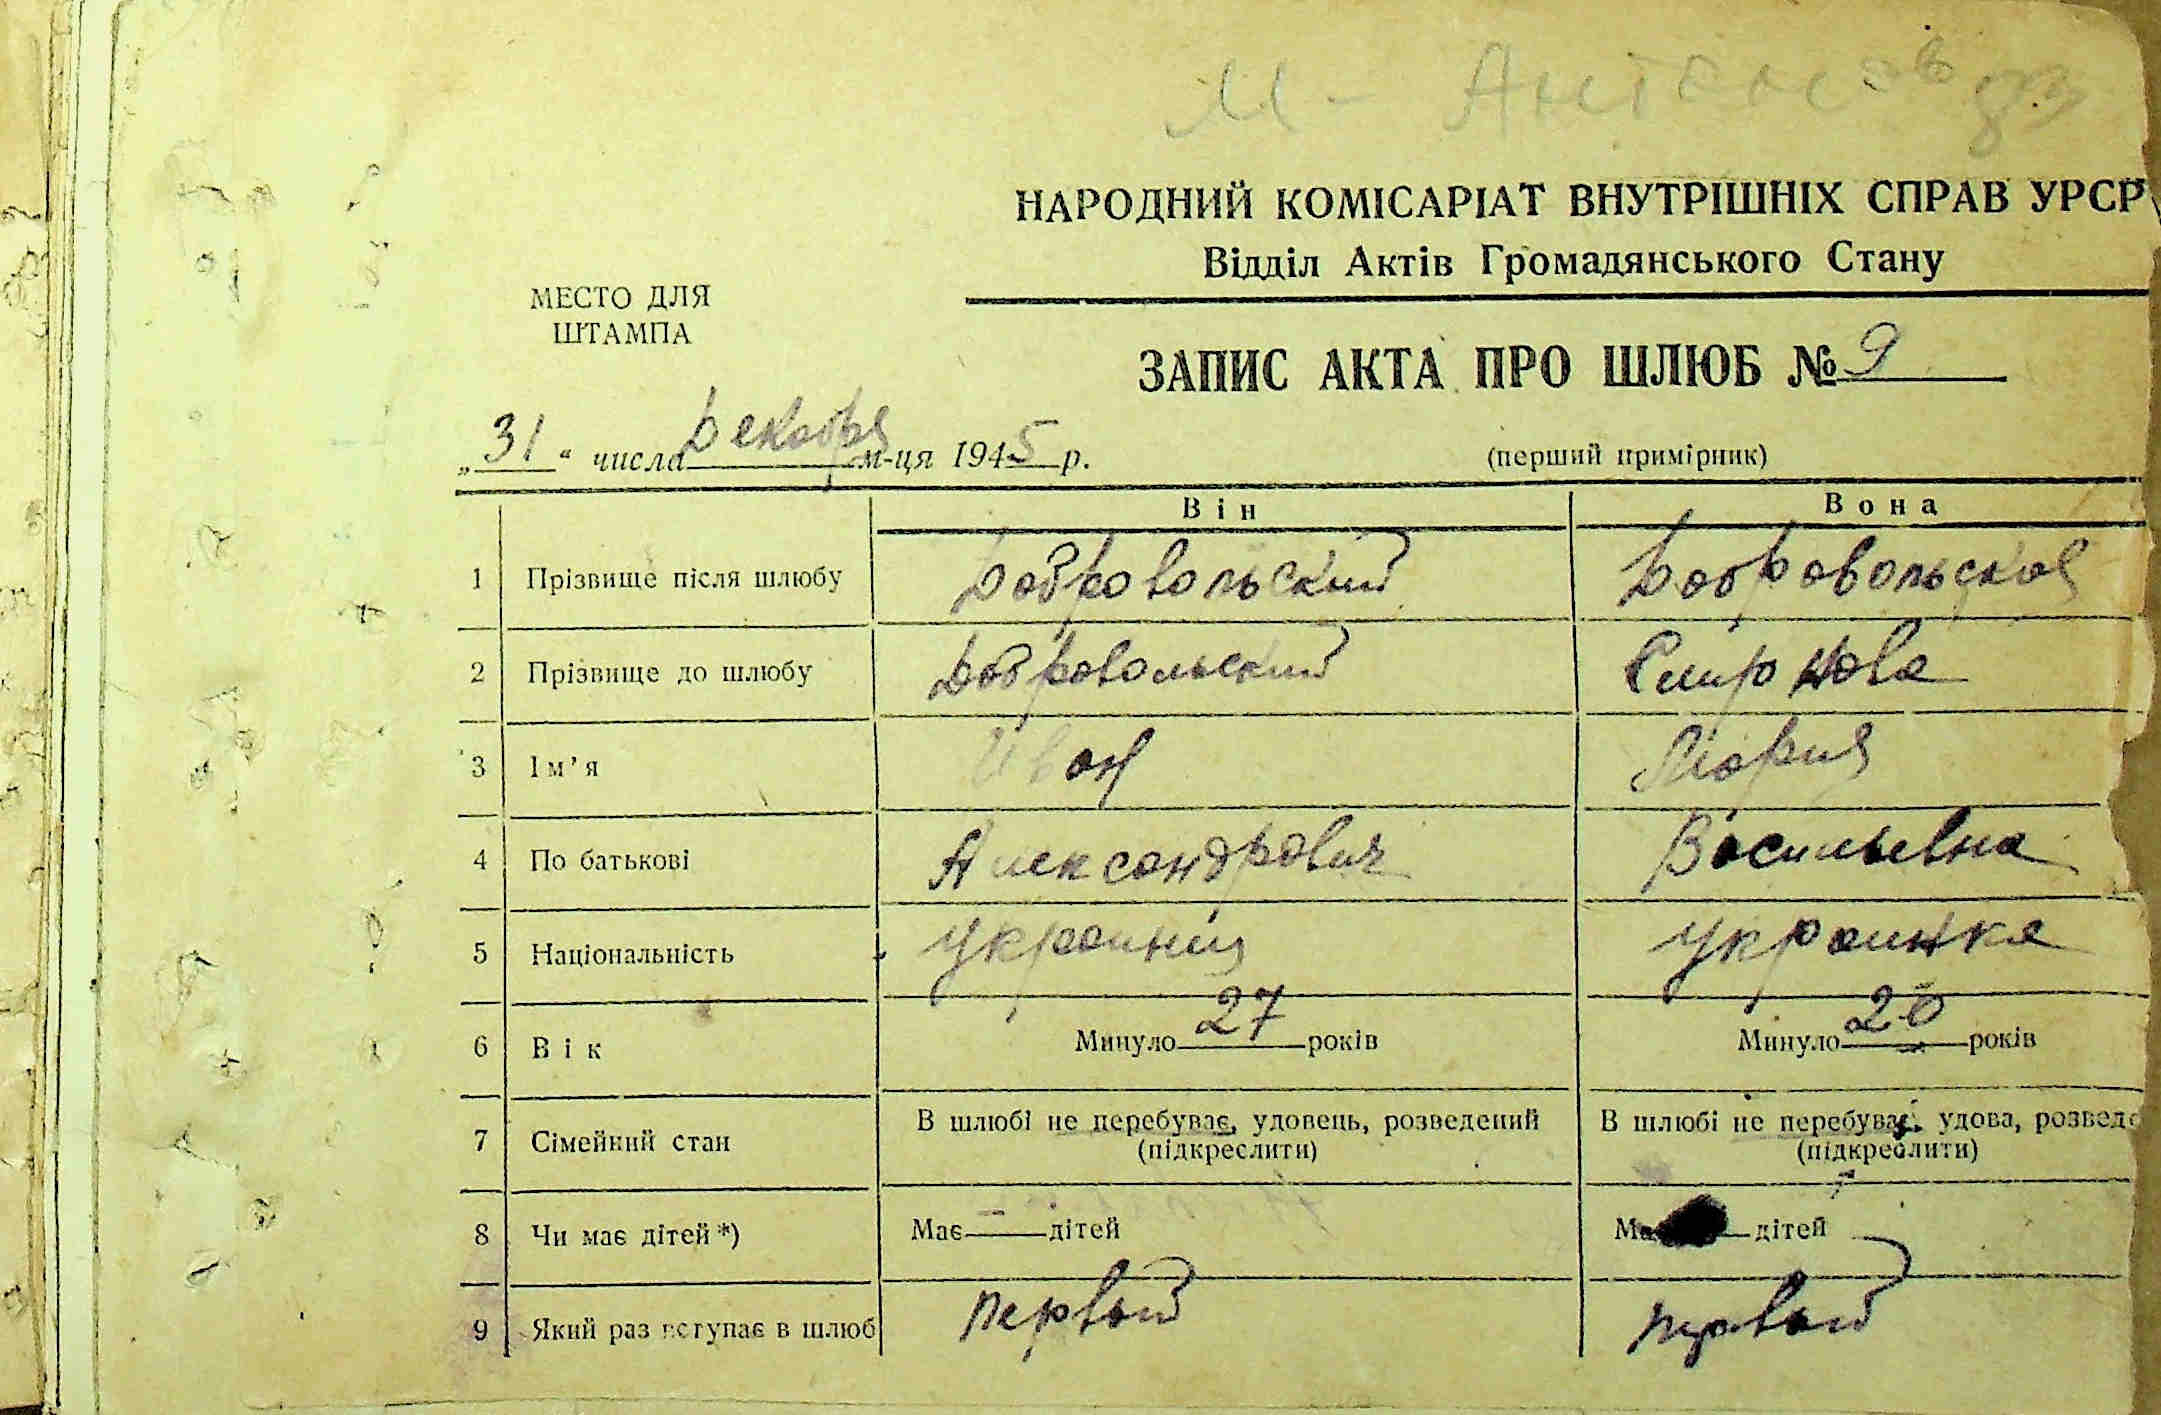 М-Антонов
НАРОДНИЙ КОМІСАРІАТ ВНУТРІШНІХ СПРАВ УРСР
Відділ Актів Громадянського Стану
МЕСТО ДЛЯ
ШТАМПА
ЗАПИС АКТА ПРО ШЛЮБ № 9
„31“ числа Декабря м-ця 1945 р.
(перший примірник)
Він Вона
1 Прізвище після шлюбу Добровольский Добровольская
2 Прізвище до шлюбу Добровольский Смирнова
3 Ім’я Иван Мария
4 По батькові Александрович Васильевна
5 Національність украинец украинка
6 Вік Минуло 27 років Минуло 20 років
7 Сімейний стан В шлюбі не перебуває, удовець, розведений В шлюбі не перебуває, удова, розвед
(підкреслити) (підкреслити)
8 Чи має дітей *) Має — дітей Має дітей
9 Який раз вступає в шлюб первый первый